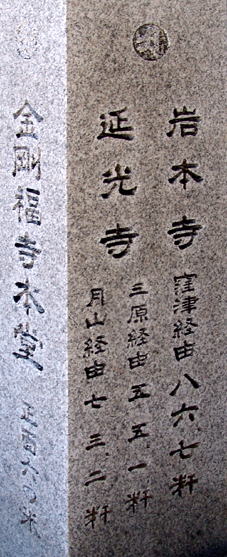 岩本寺 窪津経由 八六.七粁
延光寺 三原経由 五五.一粁
月山経由 七三.二粁
金剛福寺本堂